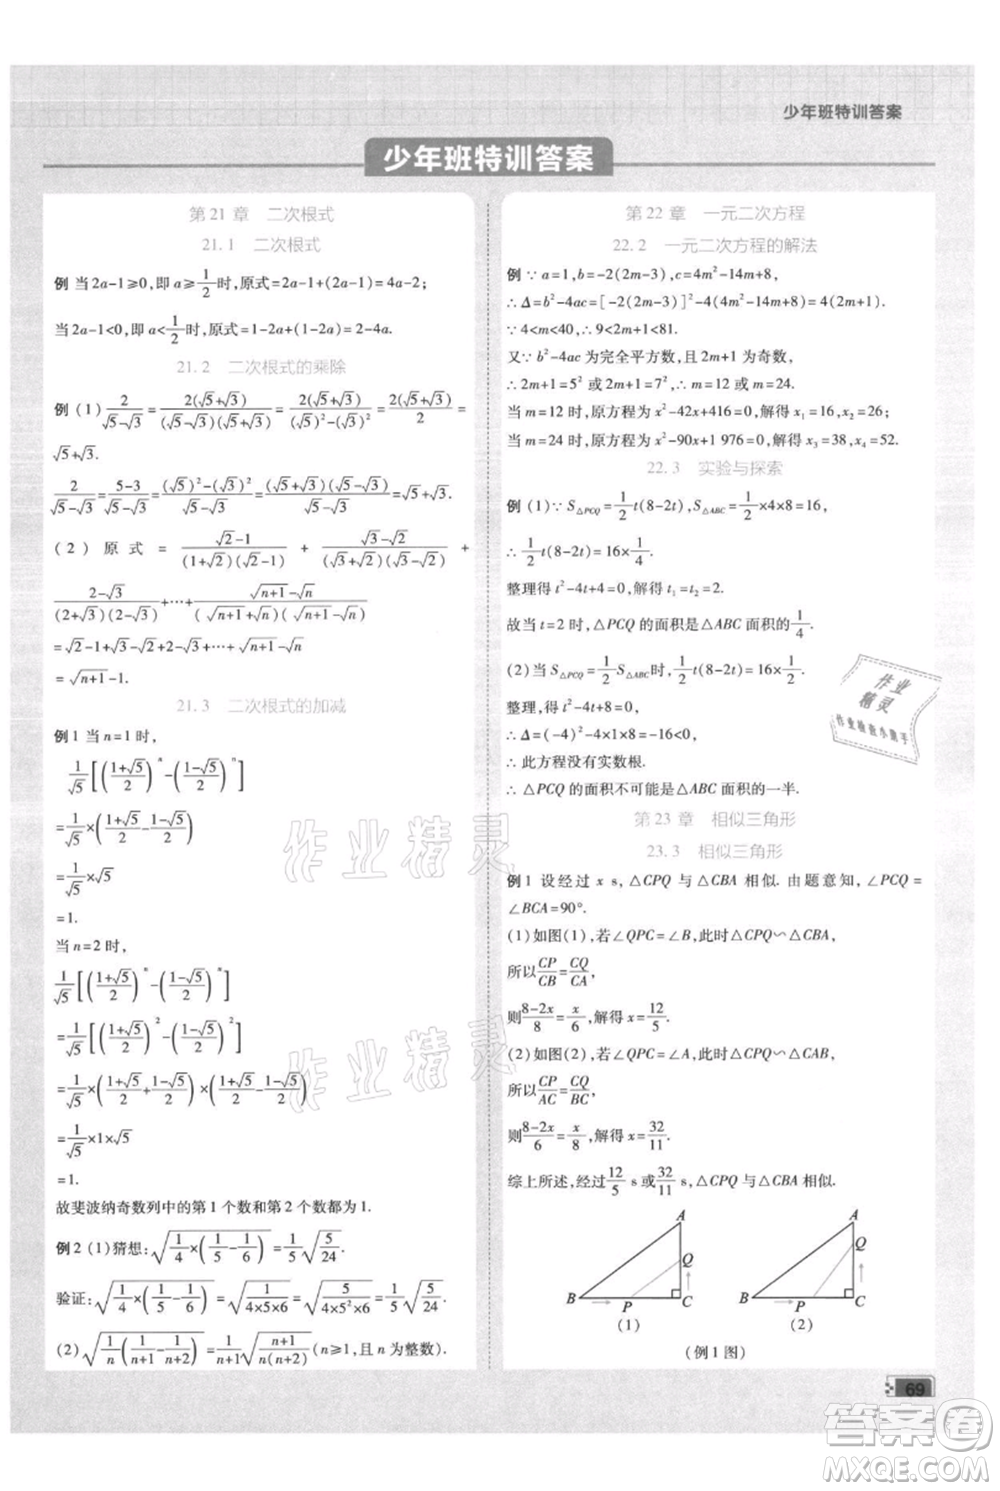 少年班特训答案
少年班特训答案
第 21 章 二次根式
21.1 二次根式
例 当 2a-1≥0,即 a≥1/2时,原式=2a-1+(2a-1)=4a-2;
当 2a-1<0,即 a<1/2时,原式=1-2a+(1-2a)=2-4a.
21.2 二次根式的乘除
例 (1) 2/(√5-√3)=2(√5+√3)/((√5-√3)(√5+√3))=2(√5+√3)/((√5)²-(√3)²)=2(√5+√3)/2=
√5+√3.
2/(√5-√3)=(5-3)/(√5-√3)=((√5)²-(√3)²)/(√5-√3)=(√5+√3)(√5-√3)/(√5-√3)=√5+√3.
(2) 原式=(√2-1)/((1+√2)(√2-1))+(√3-√2)/((√3+√2)(√3-√2))+
(2-√3)/((2+√3)(2-√3))+…+(√(n+1)-√n)/((√(n+1)+√n)(√(n+1)-√n))
=√2-1+√3-√2+2-√3+…+√(n+1)-√n
=√(n+1)-1.
21.3 二次根式的加减
例1 当 n=1 时,
1/√5[((1+√5)/2)ⁿ-((1-√5)/2)ⁿ]
=1/√5×((1+√5)/2-(1-√5)/2)
=1/√5×√5
=1.
当 n=2 时,
1/√5[((1+√5)/2)ⁿ-((1-√5)/2)ⁿ]
=1/√5[((1+√5)/2)²-((1-√5)/2)²]
=1/√5×((1+√5)/2+(1-√5)/2)×((1+√5)/2-(1-√5)/2)
=1/√5×1×√5
=1.
故斐波纳奇数列中的第 1 个数和第 2 个数都为 1.
例2 (1)猜想:√(1/4×(1/5-1/6))=1/5√(5/24)
验证:√(1/4×(1/5-1/6))=√(1/(4×5×6))=√(5/(4×5²×6))=1/5√(5/24).
(2)√(1/n(1/(n+1)-1/(n+2)))=1/(n+1)√((n+1)/(n(n+2)))(n≥1,且 n 为整数)
第 22 章 一元二次方程
22.2 一元二次方程的解法
例 ∵ a=1,b=-2(2m-3),c=4m²-14m+8,
∴ Δ=b²-4ac=[-2(2m-3)]²-4(4m²-14m+8)=4(2m+1).
∵ 4<m<40,∴ 9<2m+1<81.
又∵ b²-4ac 为完全平方数,且 2m+1 为奇数,
∴ 2m+1=5² 或 2m+1=7²,∴ m=12 或 m=24.
当 m=12 时,原方程为 x²-42x+416=0,解得 x₁=16,x₂=26;
当 m=24 时,原方程为 x²-90x+1 976=0,解得 x₃=38,x₄=52.
22.3 实验与探索
例 (1)∵ S△PCQ=1/2t(8-2t),S△ABC=1/2×4×8=16,
∴ 1/2t(8-2t)=16×1/4.
整理得 t²-4t+4=0,解得 t₁=t₂=2.
故当 t=2 时,△PCQ 的面积是△ABC 面积的1/4.
(2)当 S△PCQ=1/2S△ABC时,1/2t(8-2t)=16×1/2,
整理,得 t²-4t+8=0.
∴ Δ=(-4)²-4×1×8=-16<0.
∴ 此方程没有实数根.
∴ △PCQ 的面积不可能是△ABC 面积的一半.
第 23 章 相似三角形
23.3 相似三角形
例1 设经过 x s,△CPQ 与△CBA 相似. 由题意知,∠PCQ=
∠BCA=90°.
(1)如图(1),若∠QPC=∠B,此时△CPQ∽△CBA,
所以CP/CB=CQ/CA,
则(8-2x)/8=x/6,解得 x=12/5.
(2)如图(2),若∠QPC=∠A,此时△CPQ∽△CAB,
所以CP/AC=CQ/BC,
则(8-2x)/6=x/8,解得 x=32/11.
综上所述,经过12/5 s 或32/11 s,△CPQ 与△CBA 相似.
A
Q
B
P
C
(1)
A
Q
B
P
C
(2)
(例 1 图)
69
作业
精灵
作业检查小助手
作业精灵
作业精灵
答案卷
MXQE.COM